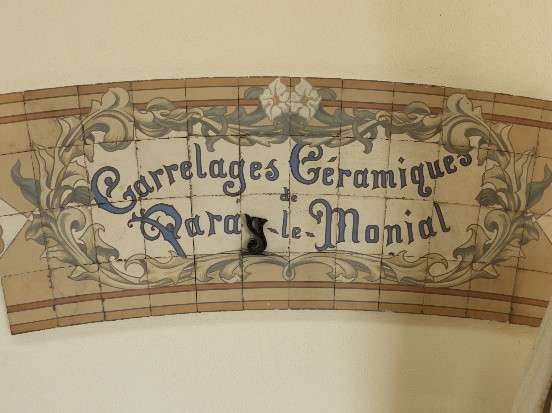 Carrelages Céramiques
de
Paray-le-Monial